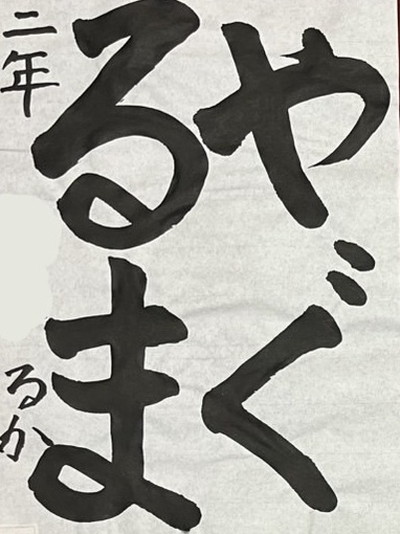 やぐ
るま
二年
るか